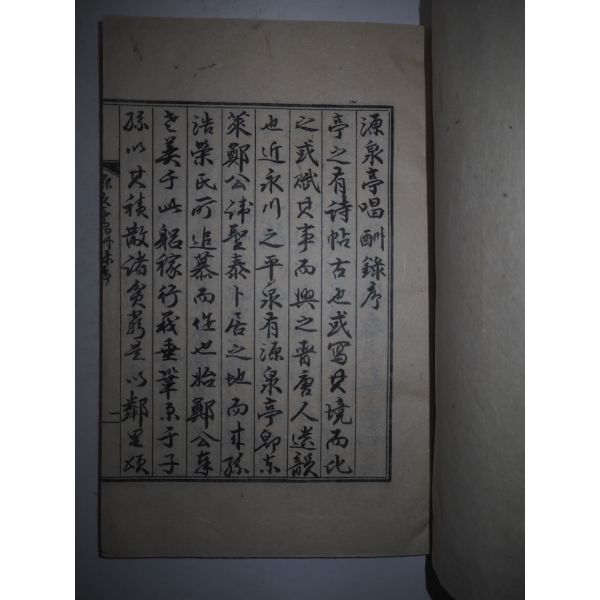 源泉亭唱酬錄序
亭之有詩帖古也或寫其境而比
之或賦其事而興之晉唐人遺韻
也近永川之平泉有源泉亭卽東
萊鄭公諱聖泰卜居之地而來孫
浩榮氏所追慕而作也始鄭公
老美于此躬稼行義垂 于子
孫以其積散諸貧窮是以鄰里頌
一